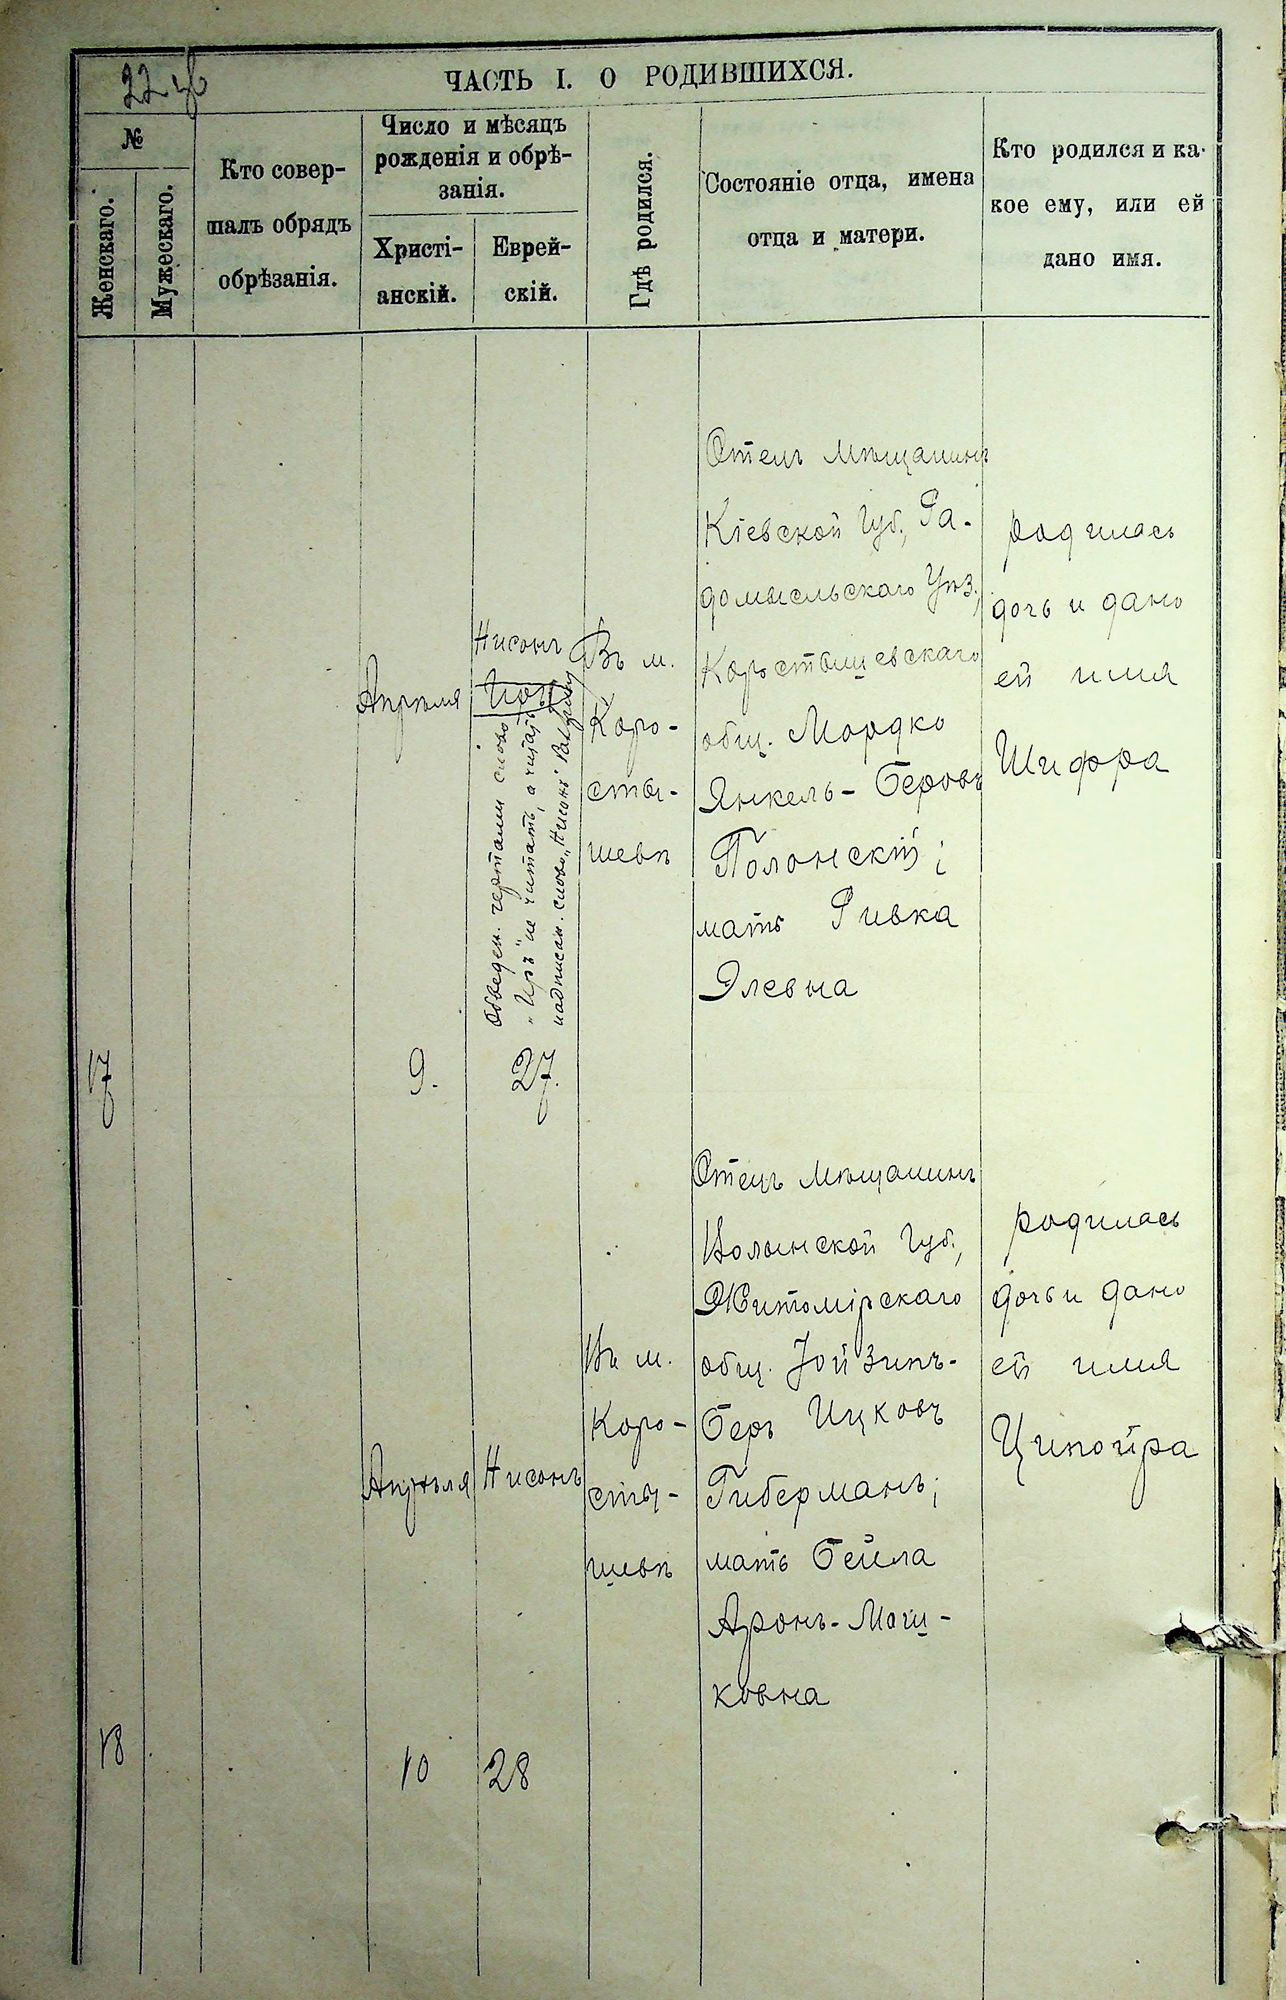 22
ЧАСТЬ I. О РОДИВШИХСЯ.
№
Женскаго.
Мужескаго.
Кто совер-
шалъ обрядъ
обрѣзанія.
Число и мѣсяцъ
рожденія и обрѣ-
занія.
Христі-
анскій.
Еврей-
скій.
Гдѣ родился.
Состояніе отца, имена
отца и матери.
Кто родился и ка-
кое ему, или ей
дано имя.
17
Апрѣля
9.
Нисонъ
Иръ
Обведен. чертами слово
"Иръ" не читать, а читать
надписан. слово "Нисонъ"
27.
Въ м.
Коро-
сты-
шевѣ
Отецъ мѣщанинъ
Кіевской Губ., Ра-
домысльскаго Уѣз.,
Коростышевскаго
общ. Мордко
Янкель-Беровъ
Полонскій;
мать Ривка
Элевна
родилась
дочь и дано
ей имя
Шифра
18
Апрѣля
10
Нисонъ
28
Въ м.
Коро-
сты-
шевѣ
Отецъ мѣщанинъ
Волынской Губ.,
Житомірскаго
общ. Іойзипъ-
Беръ Ицковъ
Гиберманъ;
мать Бейла
Аронъ-Мош-
ковна
родилась
дочь и дано
ей имя
Ципойра